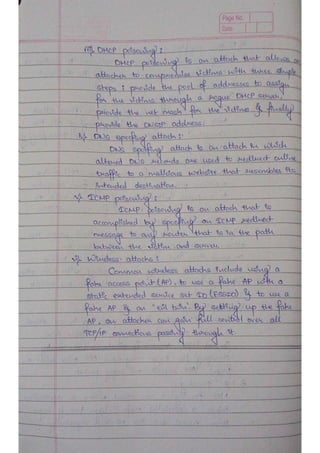 Page No.
Date
iii) DHCP poisoning :
DHCP poisoning is an attach that allows an
attacher to compromise victims with three simple
steps : provide the pool of addresses to assign
for the victims through a rogue DHCP server,
provide the net mask for the victims & finally
provide the address.
DNS spoofing attach :
DNS spoofing attach is an attach in which
altered DNS records are used to redirect online
traffic to a malicious website that resembles its
intended destination.
ICMP poisoning :
ICMP poisoning is an attach that is
accomplished by spoofing an ICMP redirect
message to any router that is in the path
between the victim and server.
Wireless attachs :
Common wireless attachs include using a
fake access point (AP), to use a fake AP with a
static extended service set ID (ESSID) & to use a
fake AP & an "evil twin". By setting up the fake
AP, an attacher can gain full control over all
TCP/IP connections passing through it.